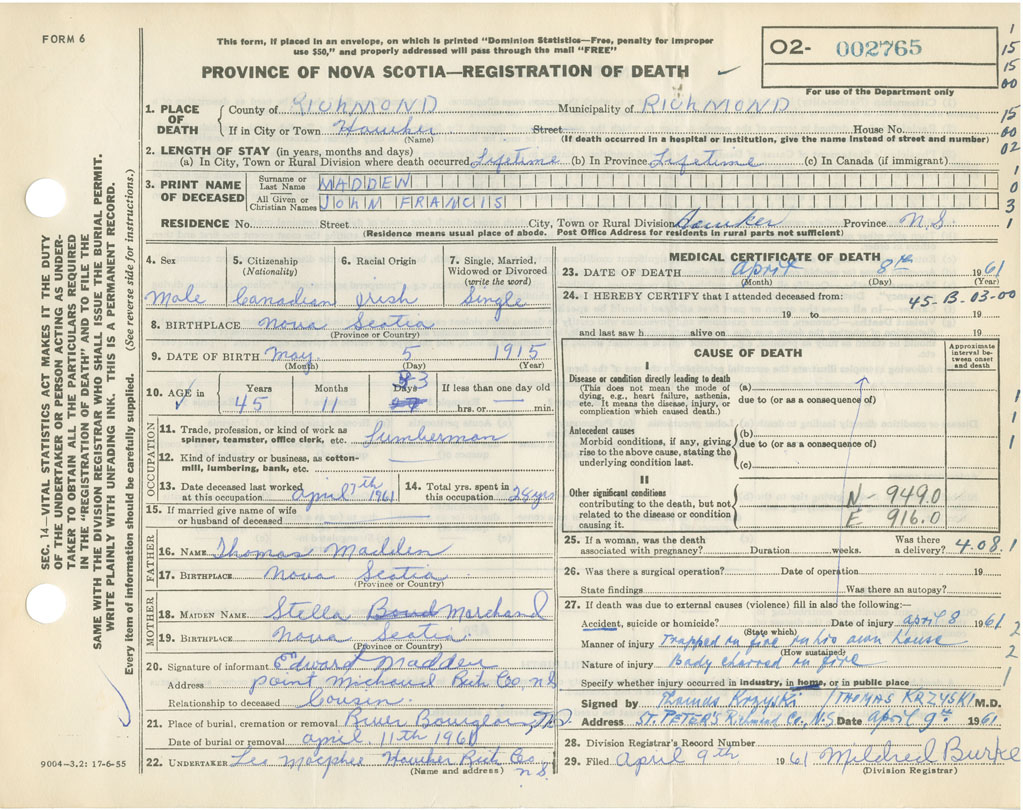 FORM 6
This form, if placed in an envelope, on which is printed "Dominion Statistics—Free, penalty for improper
use $50," and properly addressed will pass through the mail "FREE"
PROVINCE OF NOVA SCOTIA—REGISTRATION OF DEATH
02- 002765
For use of the Department only
1
15
15
00
15
00
02
1
0
3
1
SEC. 14—VITAL STATISTICS ACT MAKES IT THE DUTY
OF THE UNDERTAKER OR PERSON ACTING AS UNDER-
TAKER TO OBTAIN ALL THE PARTICULARS REQUIRED
IN THE "REGISTRATION OF DEATH" AND TO FILE THE
SAME WITH THE DIVISION REGISTRAR WHO SHALL ISSUE THE BURIAL PERMIT.
WRITE PLAINLY WITH UNFADING INK. THIS IS A PERMANENT RECORD.
Every item of information should be carefully supplied. (See reverse side for instructions.)
1. PLACE OF DEATH
County of RICHMOND Municipality of RICHMOND
If in City or Town Hawker Street House No.
(Name) (If death occurred in a hospital or institution, give the name instead of street and number)
2. LENGTH OF STAY (in years, months and days)
(a) In City, Town or Rural Division where death occurred Lifetime (b) In Province Lifetime (c) In Canada (if immigrant)
3. PRINT NAME OF DECEASED
Surname or Last Name MADDEN
All Given or Christian Names JOHN FRANCIS
RESIDENCE No. Street City, Town or Rural Division Hawker Province N.S
(Residence means usual place of abode. Post Office Address for residents in rural parts not sufficient)
4. Sex 5. Citizenship (Nationality) 6. Racial Origin 7. Single, Married, Widowed or Divorced (write the word)
Male Canadian Irish Single
8. BIRTHPLACE Nova Scotia
(Province or Country)
9. DATE OF BIRTH May 5 1915
(Month) (Day) (Year)
10. AGE in Years Months Days If less than one day old
45 11 3 hrs. or min.
OCCUPATION
11. Trade, profession, or kind of work as
spinner, teamster, office clerk, etc. Lumberman
12. Kind of industry or business, as cotton-
mill, lumbering, bank, etc.
13. Date deceased last worked
at this occupation April 7th 1961
14. Total yrs. spent in
this occupation 28 yrs
15. If married give name of wife
or husband of deceased
FATHER
16. NAME Thomas Madden
17. BIRTHPLACE Nova Scotia
(Province or Country)
MOTHER
18. MAIDEN NAME Stella Marchand
19. BIRTHPLACE Nova Scotia
(Province or Country)
20. Signature of informant Edward Madden
Address Point Michaud Rich Co, N.S
Relationship to deceased Cousin
21. Place of burial, cremation or removal River Bourgeois
Date of burial or removal April 11th 1961
22. UNDERTAKER Leo Macphee Hawker Rich Co
N.S
(Name and address)
9004-3.2: 17-6-55
MEDICAL CERTIFICATE OF DEATH
23. DATE OF DEATH April 8th 1961
(Month) (Day) (Year)
24. I HEREBY CERTIFY that I attended deceased from:
45-B.03-00
19 to 19
and last saw h alive on 19
CAUSE OF DEATH
Approximate interval between onset and death
I
Disease or condition directly leading to death
(This does not mean the mode of
dying, e.g., heart failure, asthenia,
etc. It means the disease, injury, or
complication which caused death.)
(a)
due to (or as a consequence of)
Antecedent causes
Morbid conditions, if any, giving
rise to the above cause, stating the
underlying condition last.
(b)
due to (or as a consequence of)
(c)
II
Other significant conditions
contributing to the death, but not
related to the disease or condition
causing it.
N- 949.0
E 916.0
25. If a woman, was the death Was there
associated with pregnancy? Duration weeks. a delivery? 4.08.1
26. Was there a surgical operation? Date of operation 19
State findings Was there an autopsy?
27. If death was due to external causes (violence) fill in also the following:—
Accident, suicide or homicide? Date of injury April 8 1961
(State which)
Manner of injury Trapped in fire in his own house
(How sustained)
Nature of injury Body charred in fire
Specify whether injury occurred in industry, in home, or in public place
Signed by Thomas Krzyski /THOMAS KRZYSKI/ M.D.
Address ST. PETER'S Richmond Co., N.S Date April 9th 1961
28. Division Registrar's Record Number
29. Filed April 9th 1961 Mildred Burke
(Division Registrar)
1
1
1
2
2
1
1